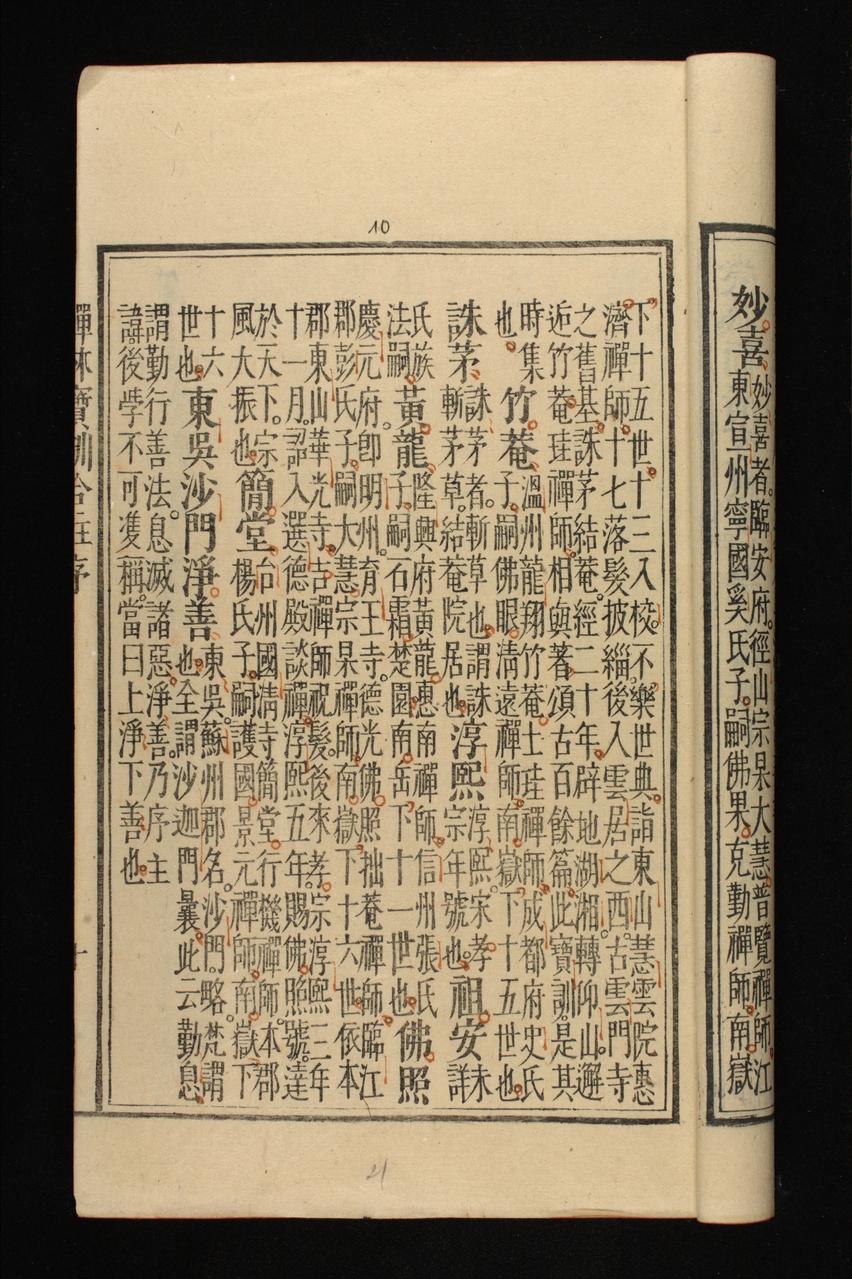 妙喜
妙喜者。臨安府。徑山宗杲大慧普覽禪師。江
東宣州寧國奚氏子。嗣佛果。克勤禪師。南嶽
10
下十五世。十三入校。不樂世典。詣東山慧雲院惠
濟禪師。十七落髮披緇後入雲居之西。古雲門寺
之舊基。誅茅結菴。經二十年。辟地湖湘。轉仰山。邂
近竹菴珪禪師。相與著頌古百餘篇。此寶訓。是其
時集
也。
竹菴
溫州龍翔竹菴。士珪禪師。成都府史氏
子。嗣佛眼。清遠禪師。南嶽下十五世也。
誅茅
誅茅者。斬草也。謂誅
斬茅草。結菴院居也。
淳熙
淳熙。宋孝
宗年號也。
祖安
未
詳
氏族
法嗣。
黃龍
隆興府黃龍。惠南禪師。信州張氏
子。嗣石霜。楚圓南岳下十一世也。
佛照
慶元府。即明州。育王寺。德光佛照拙菴禪師。臨江
郡彭氏子。嗣大慧宗杲禪師。南嶽下十六世。依本
郡東山華光寺。吉禪師祝髮。後來孝宗淳熙三年
十一月。詔入選德殿談禪。淳熙五年。賜佛照號。達
於天下。宗
風大振也。
簡堂
台州國清寺簡堂。行機禪師。本郡
楊氏子。嗣護國景元禪師。南嶽下
十六
世也。
東吳沙門淨善
東吳。蘇州郡名。沙門。略梵謂
也。全謂沙迦門曩。此云勤息
謂勤行善法。息滅諸惡。淨善。乃序主
諱後學不可雙稱。當曰上淨下善也。
禪林寶訓合註序
十
21